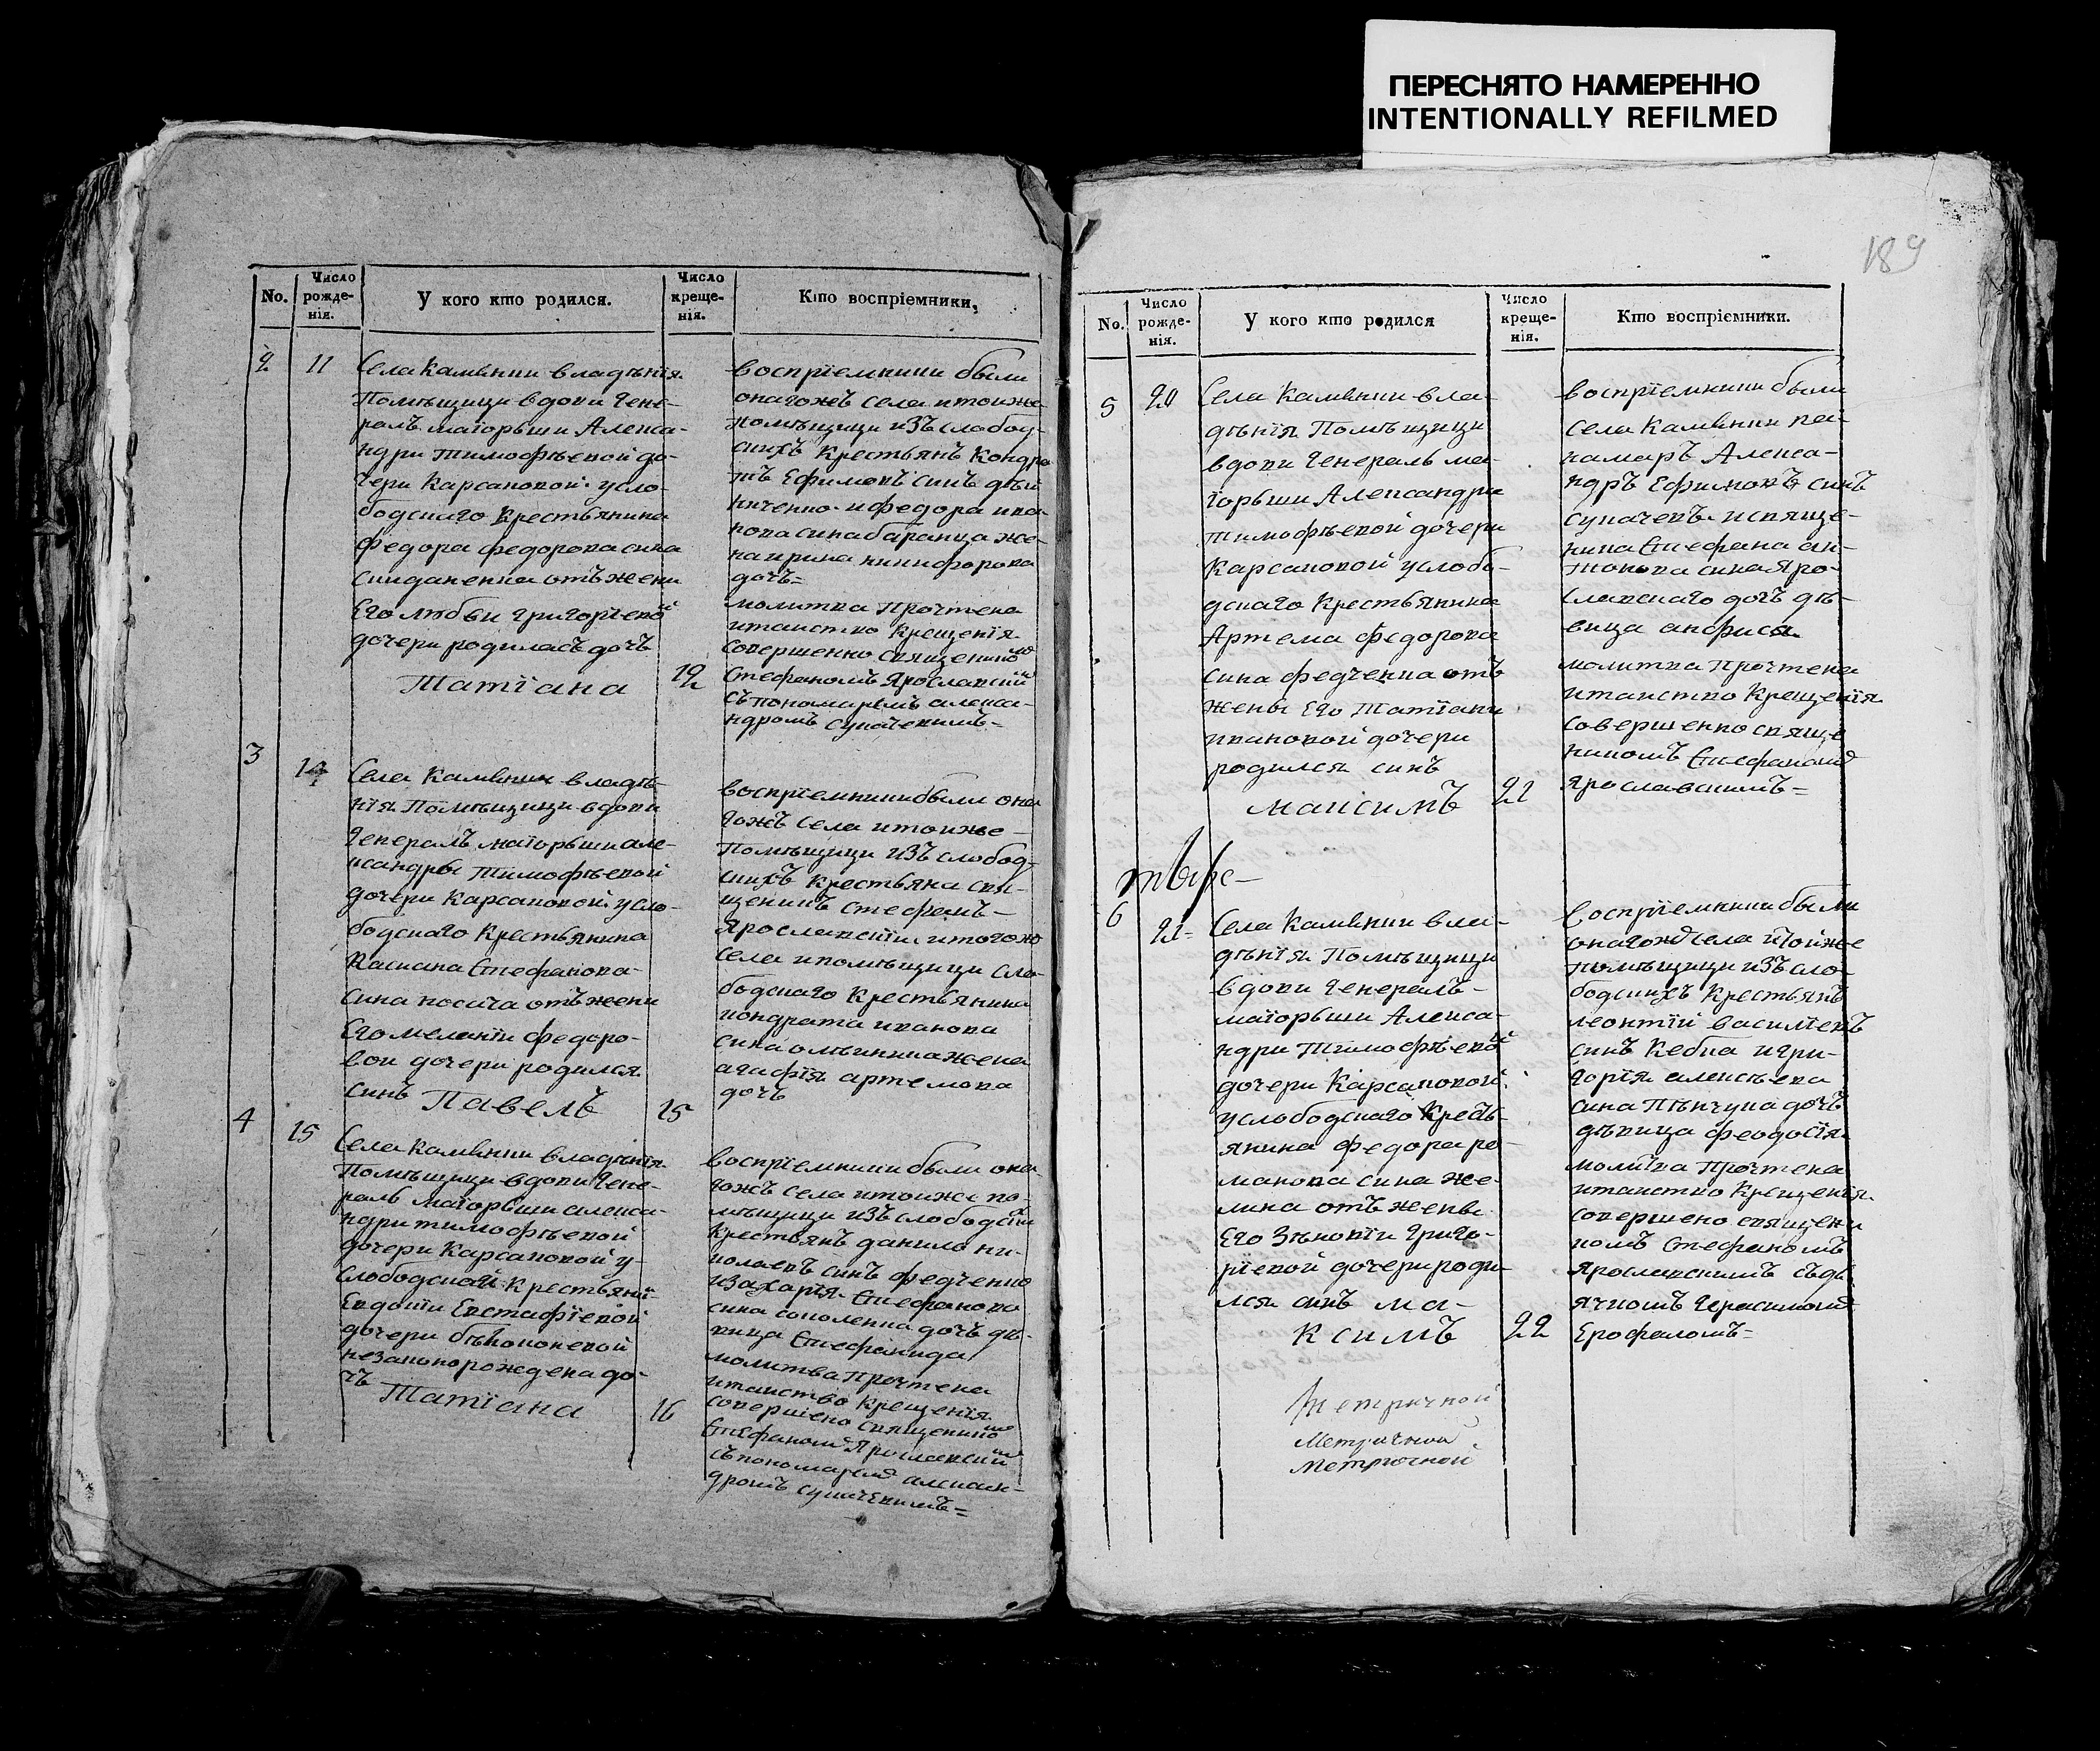 ПЕРЕСНЯТО НАМЕРЕННО
INTENTIONALLY REFILMED
189
No.
Число рожденія.
У кого кто родился.
Число крещенія.
Кто воспріемники,
2
11
Села Каменки владѣнія
Помѣщици вдови Гене-
ралъ маіорьши Алекса-
ндри Тимофѣевой до-
чери Карсаковой усло-
бодскаго Крестьянина
Федора Федорова сина
отъ жени
Его любви григоріевой
дочери родиласъ дочь
Татіана
12
воспріемники были
онагожъ села итоиже
помѣщици изъ слобод-
скихъ Крестьянъ Кондра
тъ Ефимовъ синъ
ифедора ива-
нова сина баранца же-
на ирина никифорова
дочъ=
молитва прочтена
итаинство Крещенія
совершенно священикомъ
Стефаномъ Ярославскимъ
съ пономаремъ алекса-
ндромъ супачевимъ-
3
14
Села Каменки владѣ-
нія Помѣщици вдови
Генералъ маіорьши але-
ксандры Тимофѣевой
дочери Карсаковой усло-
бодскаго Крестьянина
Касиана Стефанова-
сина носача отъ жени
Его меланіи федоро-
вои дочери родился
синъ Павелъ
15
воспріемники были она
гожъ села итоиже-
Помѣщици изъ слобод-
скихъ Крестьяна свя-
щеникъ Стефанъ-
Ярославскіи итогожъ
села ипомѣщици сло-
бодскаго Крестьянина
кондрата иванова
сина жена
агафія артемова
дочъ
4
15
Села Каменки владѣнія
Помѣщици вдови Гене-
ралъ маіорьши алекса-
ндри тимофѣевой
дочери Карсаковой у-
слободской Крестьянки
Евдокіи Евстафіевой
дочери
незаконорождена до-
чъ
Татіана
16
воспріемники были она-
гожъ села итоиже по-
мѣщици изъ слободскихъ
Крестьянъ данило ни-
колаевъ синъ федченко
изахарія Стефанова
сина соколенка дочъ дѣ-
вица Стефанида
молитва прочтена
итаинство Крещенія
совершено священикомъ
Стефаномъ Ярославскимъ
съ пономаремъ алексан-
дромъ супачевимъ=
No.
Число рожденія.
У кого кто родился
Число крещенія.
Кто воспріемники.
5
20
Села Каменки вла-
дѣнія Помѣщици
вдови Генераль ма-
іорьши Александри
тимофѣевой дочери
Карсаковой услобо-
дскаго Крестьянина
Артема федорова
сина федченка отъ
жены Его Татіани
ивановой дочери
родился синъ
максимъ
21
воспріемники были
села Каменки по-
намаръ Алекса-
ндръ Ефимовъ синъ
супачевъ исвяще-
ника Стефана ан-
тонова сина Яро-
славскаго дочъ дѣ-
вица анфиса
молитва прочтена
итаинство Крещенія
совершенно свяще
никомъ Стефаномъ
Ярославскимъ=
6
21=
Села Каменки вла-
дѣнія Помѣщици
вдови Генералъ-
маіорьши Алекса-
ндри Тимофѣевой
дочери Карсаковой
услободскаго Кресть-
янина федора ро-
манова сина же-
лина отъ жены
Его Зѣновіи Григо-
ріевой дочери роди-
лся синъ Ма-
ксимъ
22
воспріемники были
онагожъ села итоиже
помѣщици изъ сло-
бодскихъ Крестьянъ
леонтій василіевъ
синъ Кебка игри-
горія алексѣева
сина дочъ
дѣвица феодосія
молитва прочтена
итаинство Крещенія
совершено священи
комъ Стефаномъ
Ярославскимъ съдь
ячкомъ Герасимомъ
Ерофаломъ=
Метричной
Метричной
Метричной